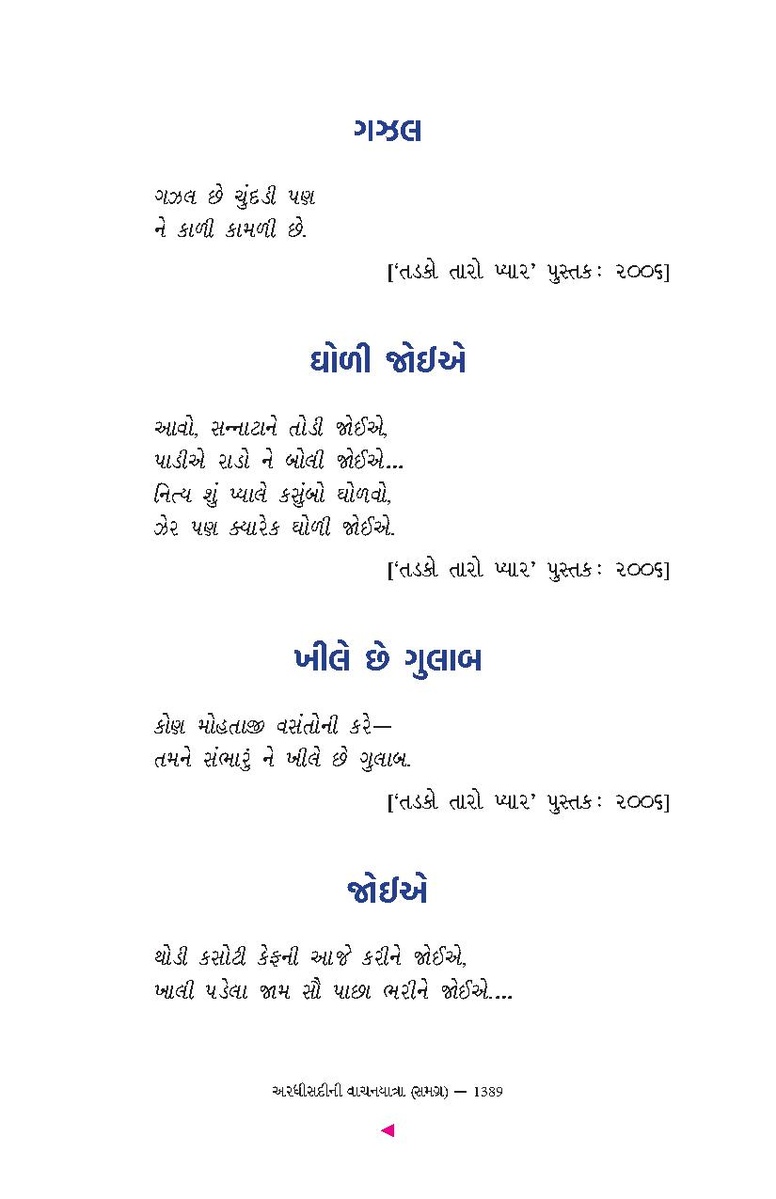 ગઝલ
ગઝલ છે ચુંદડી પણ
ને કાળી કામળી છે.
[‘તડકો તારો પ્યાર’ પુસ્તક: ૨૦૦૬]
ઘોળી જોઈએ
આવો, સન્નાટાને તોડી જોઈએ,
પાડીએ રાડો ને બોલી જોઈએ...
નિત્ય શું પ્યાલે કસુંબો ઘોળવો,
ઝેર પણ ક્યારેક ઘોળી જોઈએ.
[‘તડકો તારો પ્યાર’ પુસ્તક: ૨૦૦૬]
ખીલે છે ગુલાબ
કોણ મોહતાજી વસંતોની કરે—
તમને સંભારું ને ખીલે છે ગુલાબ.
[‘તડકો તારો પ્યાર’ પુસ્તક: ૨૦૦૬]
જોઈએ
થોડી કસોટી કેફની આજે કરીને જોઈએ,
ખાલી પડેલા જામ સૌ પાછા ભરીને જોઈએ....
અરધીસદીની વાચનયાત્રા (સમગ્ર) — 1389